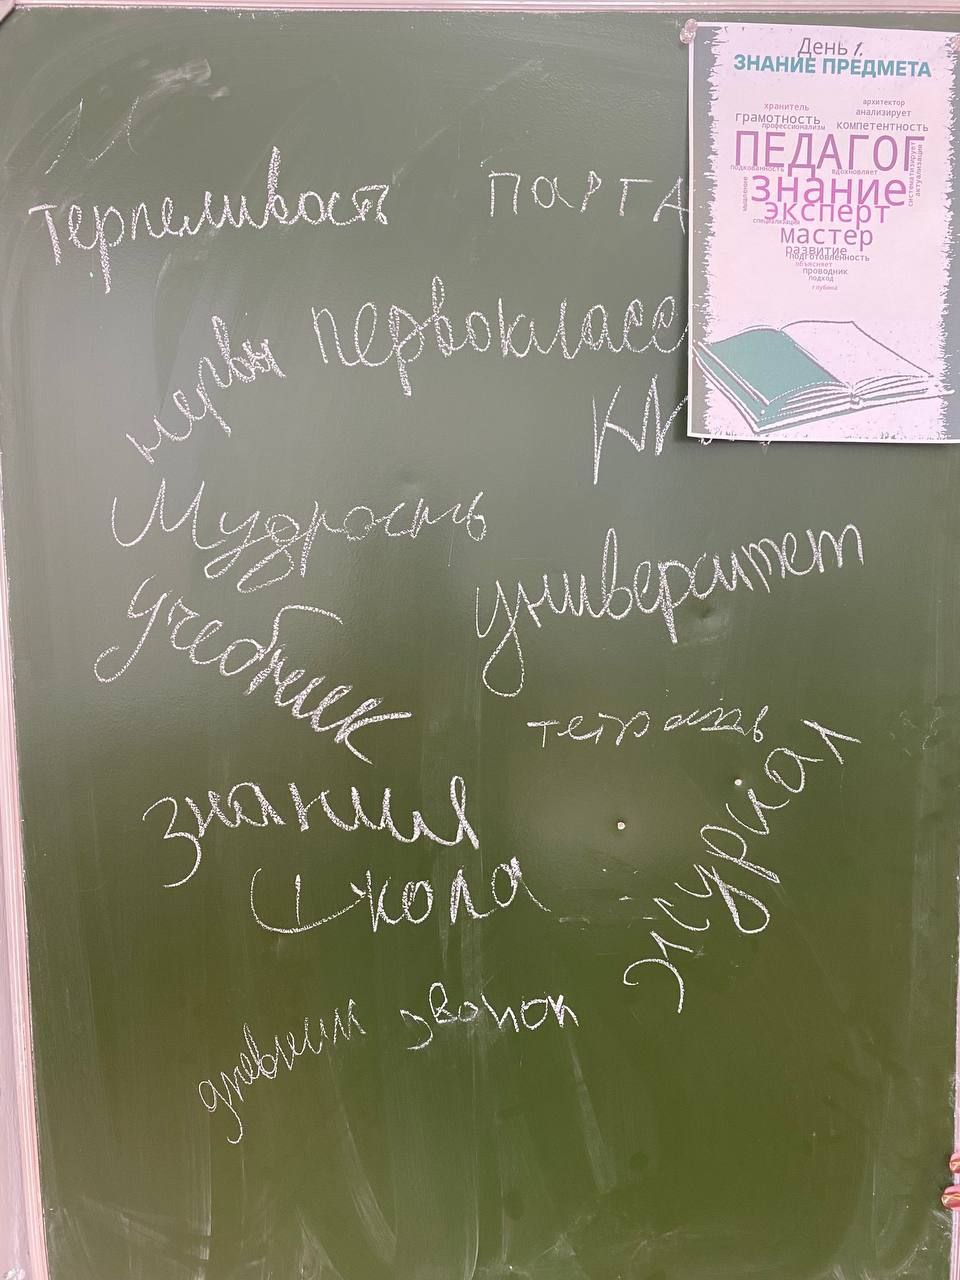 День 1.
ЗНАНИЕ ПРЕДМЕТА
хранитель
архитектор
анализирует
грамотность
профессионализм
компетентность
ПЕДАГОГ
подкованность
вдохновляет
систематизирует
актуализация
мышление
знание
эксперт
специализация
мастер
развитие
подготовленность
объясняет
проводник
подход
глубина
терпеливость ПАРТА
нервы первокласс
Мудрость
университет
учебник
тетрадь
знания
журнал
школа
дневник звонок